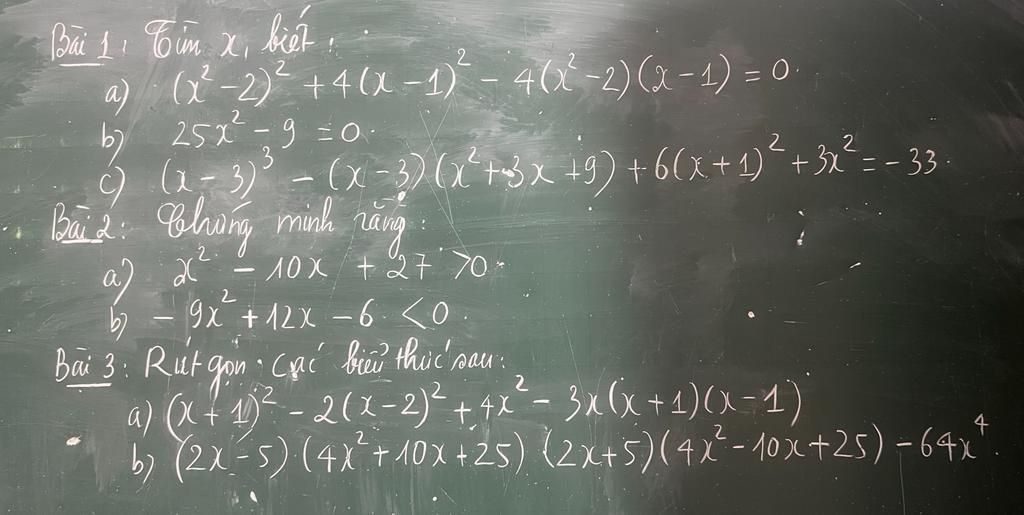 Bài 1: Tìm x, biết:
a) (x² - 2)² + 4(x - 1)² - 4(x² - 2)(x - 1) = 0.
b) 25x² - 9 = 0.
c) (x - 3)³ - (x - 3)(x² + 3x + 9) + 6(x + 1)² + 3x² = -33.
Bài 2: Chứng minh rằng:
a) x² - 10x + 27 > 0.
b) -9x² + 12x - 6 < 0.
Bài 3: Rút gọn các biểu thức sau:
a) (x + 1)² - 2(x - 2)² + 4x² - 3x(x + 1)(x - 1)
b) (2x - 5)(4x² + 10x + 25)(2x + 5)(4x² - 10x + 25) - 64x⁴.